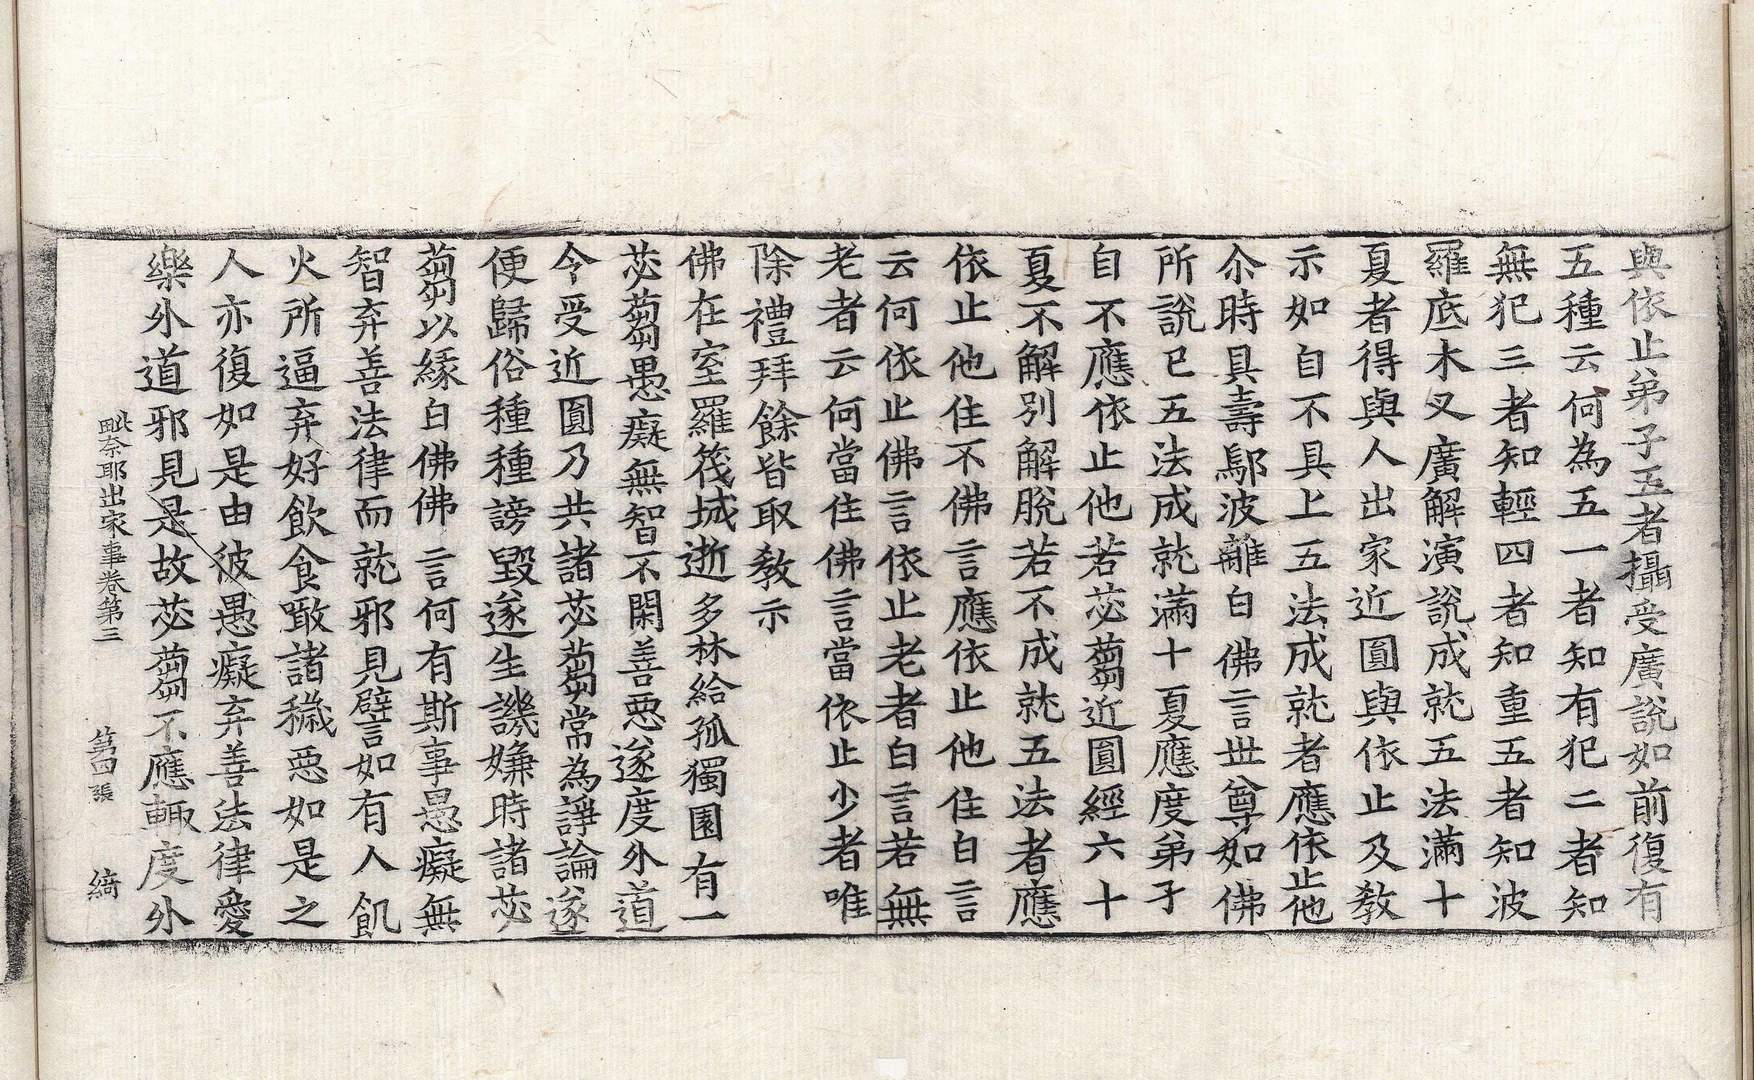 與依止弟子五者攝受廣說如前復有
五種云何為五一者知有犯二者知
無犯三者知輕四者知重五者知波
羅底木叉廣解演說成就五法滿十
夏者得與人出家近圓與依止及教
示如自不具上五法成就者應依止他
尒時具壽鄔波離白佛言世尊如佛
所說已五法成就滿十夏應度弟子
自不應依止他若苾蒭近圓經六十
夏不解別解脫若不成就五法者應
依止他住不佛言應依止他住白言
云何依止佛言依止老者白言若無
老者云何當住佛言當依止少者唯
除禮拜餘皆取教示
佛在室羅筏城逝多林給孤獨園有一
苾蒭愚癡無智不閑善惡遂度外道
今受近圓乃共諸苾蒭常為諍論遂
便歸俗種種謗毀遂生譏嫌時諸苾
蒭以緣白佛佛言何有斯事愚癡無
智弃善法律而就邪見譬如有人飢
火所逼弃好飲食噉諸穢惡如是之
人亦復如是由彼愚癡弃善法律愛
樂外道邪見是故苾蒭不應輒度外
毗奈耶出家事卷第三 第四張 綺